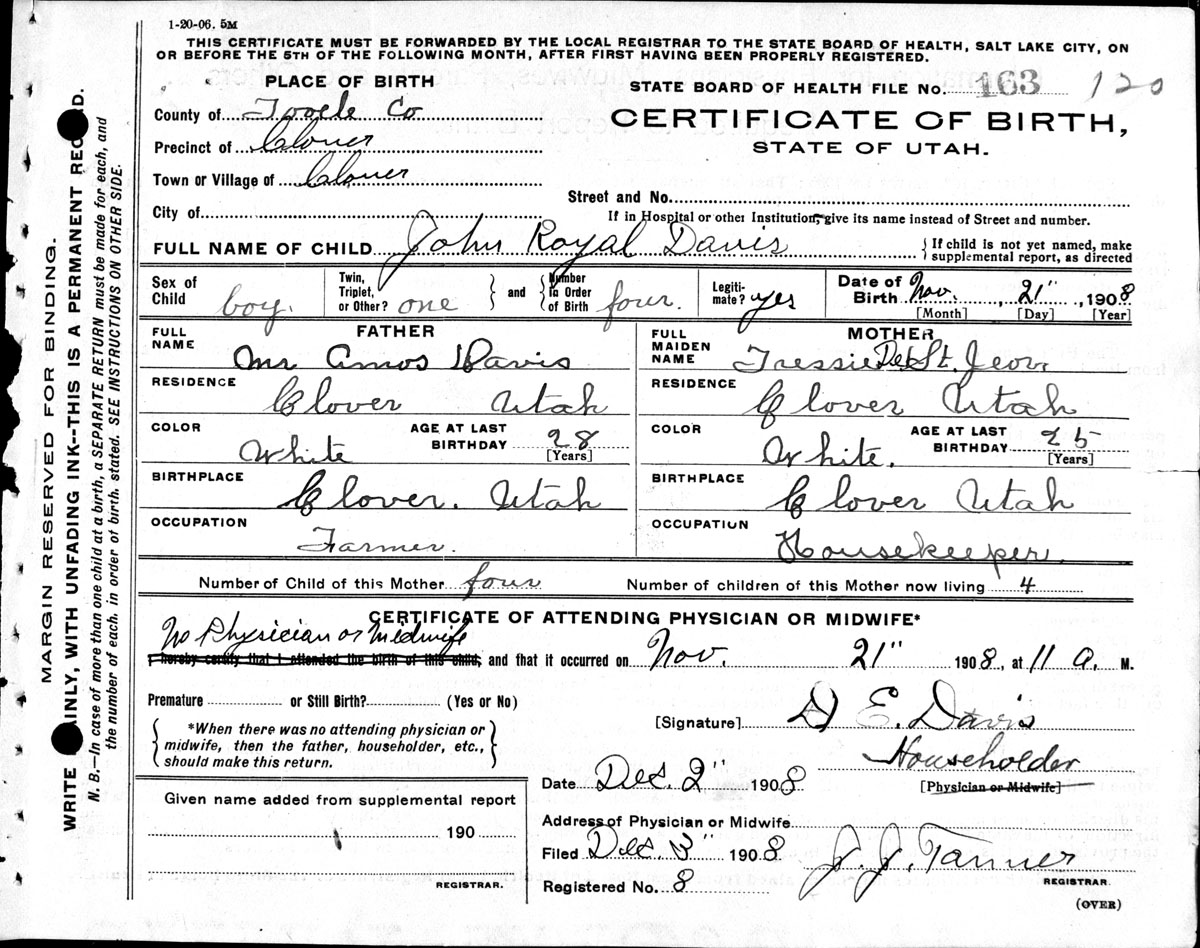 1-20-06. 5M
THIS CERTIFICATE MUST BE FORWARDED BY THE LOCAL REGISTRAR TO THE STATE BOARD OF HEALTH, SALT LAKE CITY, ON
OR BEFORE THE 5TH OF THE FOLLOWING MONTH, AFTER FIRST HAVING BEEN PROPERLY REGISTERED.
PLACE OF BIRTH
STATE BOARD OF HEALTH FILE No. 163 120
County of Tooele Co
CERTIFICATE OF BIRTH,
Precinct of Clover
STATE OF UTAH.
Town or Village of Clover
Street and No.
City of
If in Hospital or other Institution, give its name instead of Street and number.
FULL NAME OF CHILD John Royal Davis
If child is not yet named, make
supplemental report, as directed
Sex of Child boy.
Twin, Triplet, or Other? one and Number in Order of Birth four
Legitimate? yes
Date of Birth Nov. 21", 1908
[Month] [Day] [Year]
FATHER
FULL NAME Mr Amos Davis
RESIDENCE
Clover Utah
COLOR White
AGE AT LAST BIRTHDAY 28
[Years]
BIRTHPLACE
Clover. Utah
OCCUPATION
Farmer.
MOTHER
FULL MAIDEN NAME Tressie De St. Jeor
RESIDENCE
Clover Utah
COLOR White.
AGE AT LAST BIRTHDAY 25
[Years]
BIRTHPLACE
Clover Utah
OCCUPATION
Housekeeper
Number of Child of this Mother four Number of children of this Mother now living 4
CERTIFICATE OF ATTENDING PHYSICIAN OR MIDWIFE*
No Physician or Medwife
I hereby certify that I attended the birth of this child, and that it occurred on Nov. 21" 1908, at 11 a. M.
Premature or Still Birth? (Yes or No)
*When there was no attending physician or
midwife, then the father, householder, etc.,
should make this return.
[Signature] D E. Davis
Householder
Date Dec. 2" 1908
[Physician or Midwife]
Given name added from supplemental report
190
REGISTRAR.
Address of Physician or Midwife
Filed Dec. 3" 1908 J. J. Tanner
REGISTRAR.
Registered No. 8
(OVER)
MARGIN RESERVED FOR BINDING.
WRITE AINLY, WITH UNFADING INK--THIS IS A PERMANENT REC D.
N. B.—In case of more than one child at a birth, a SEPARATE RETURN must be made for each, and
the number of each, in order of birth, stated. SEE INSTRUCTIONS ON OTHER SIDE.